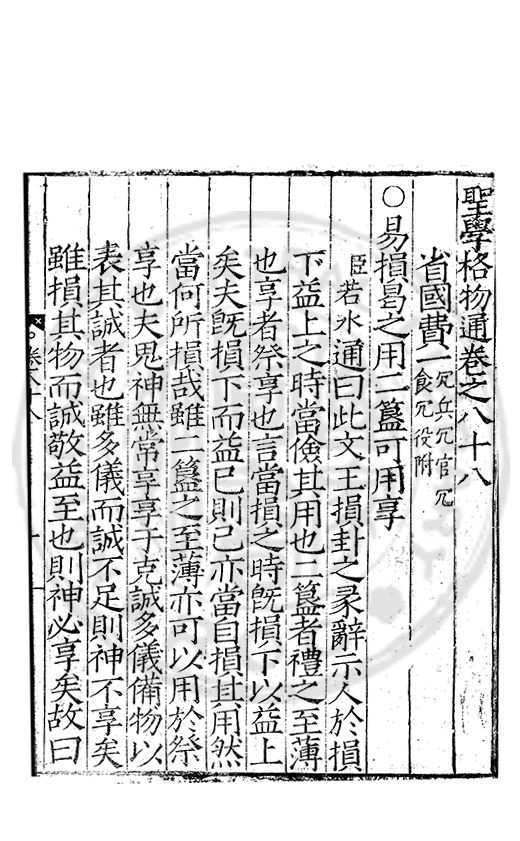 聖學格物通卷之八十八
省國費一冗兵冗官冗食冗役附
○易損曷之用二簋可用享
臣若水通曰此文王損卦之彖辭示人於損
下益上之時當儉其用也二簋者禮之至薄
也享者祭享也言當損之時旣損下以益上
矣夫旣損下而益已則己亦當自損其用然
當何所損哉雖二簋之至薄亦可以用於祭
享也夫鬼神無常享享于克誠多儀備物以
表其誠者也雖多儀而誠不足則神不享矣
雖損其物而誠敬益至也則神必享矣故曰
卷八十八
一